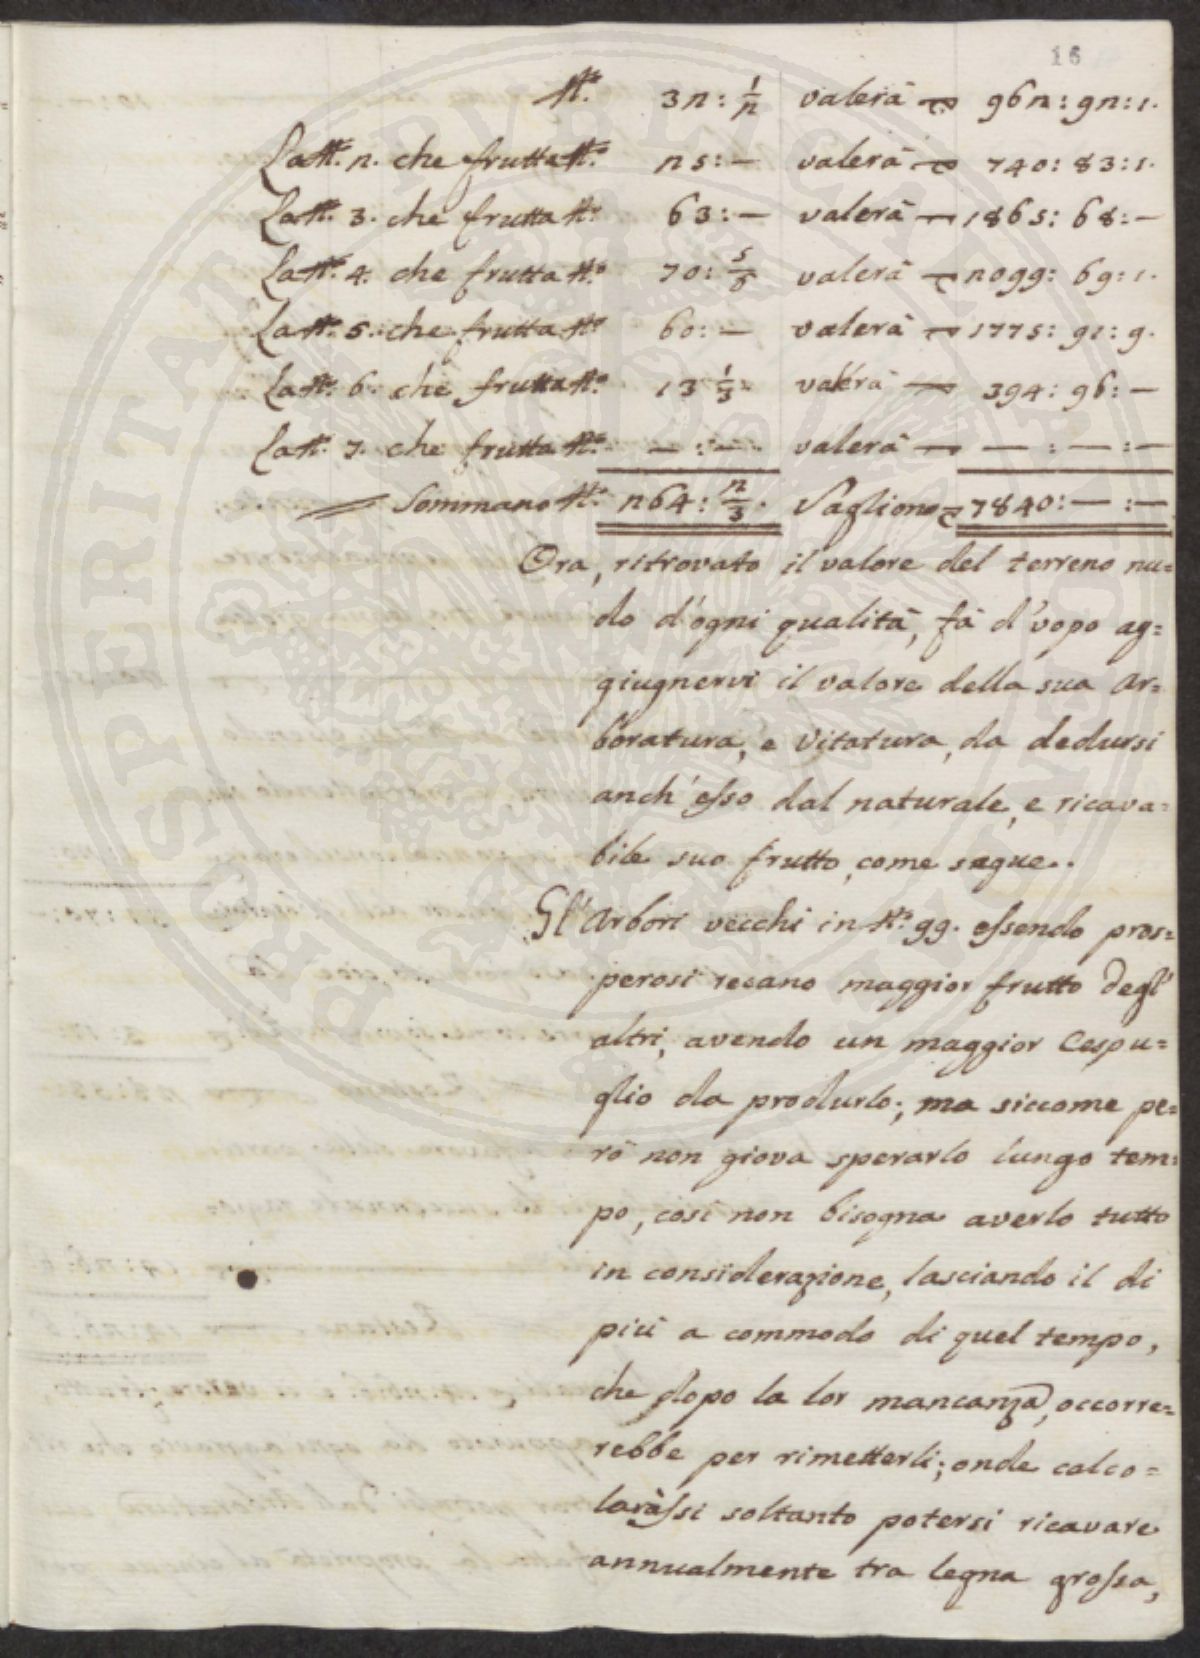 16
N.° 32: 1/2 valerà 962: 92: 1.
La N.° 2. che frutta N.° 25: — valerà 740: 83: 1.
La N.° 3. che frutta N.° 63: — valerà 1865: 68: —
La N.° 4. che frutta N.° 70: 5/6 valerà 2099: 69: 1.
La N.° 5. che frutta N.° 60: — valerà 1775: 91: 9.
La N.° 6. che frutta N.° 13 1/3 valerà 394: 96: —
La N.° 7. che frutta N.° — : — valerà — : — : —
Sommano N.° 264: 2/3. Vagliono 7840: — : —
Ora, ritrovato il valore del terreno nu=
do d'ogni qualità, fà d'vopo ag=
giugnervi il valore della sua Ar=
boratura, e Vitatura, da dedursi
anch'esso dal naturale, e ricava=
bile suo frutto, come segue.
Gl'Arbori vecchi in N.° 99. essendo pros=
perosi recano maggior frutto degl'
altri, avendo un maggior Cespu=
glio da produrlo; ma siccome pe=
rò non giova sperarlo lungo tem=
po, così non bisogna averlo tutto
in considerazione, lasciando il di
più a commodo di quel tempo,
che dopo la lor mancanza, occorre=
rebbe per rimetterli; onde calco=
larassi soltanto potersi ricavare
annualmente tra legna grossa,